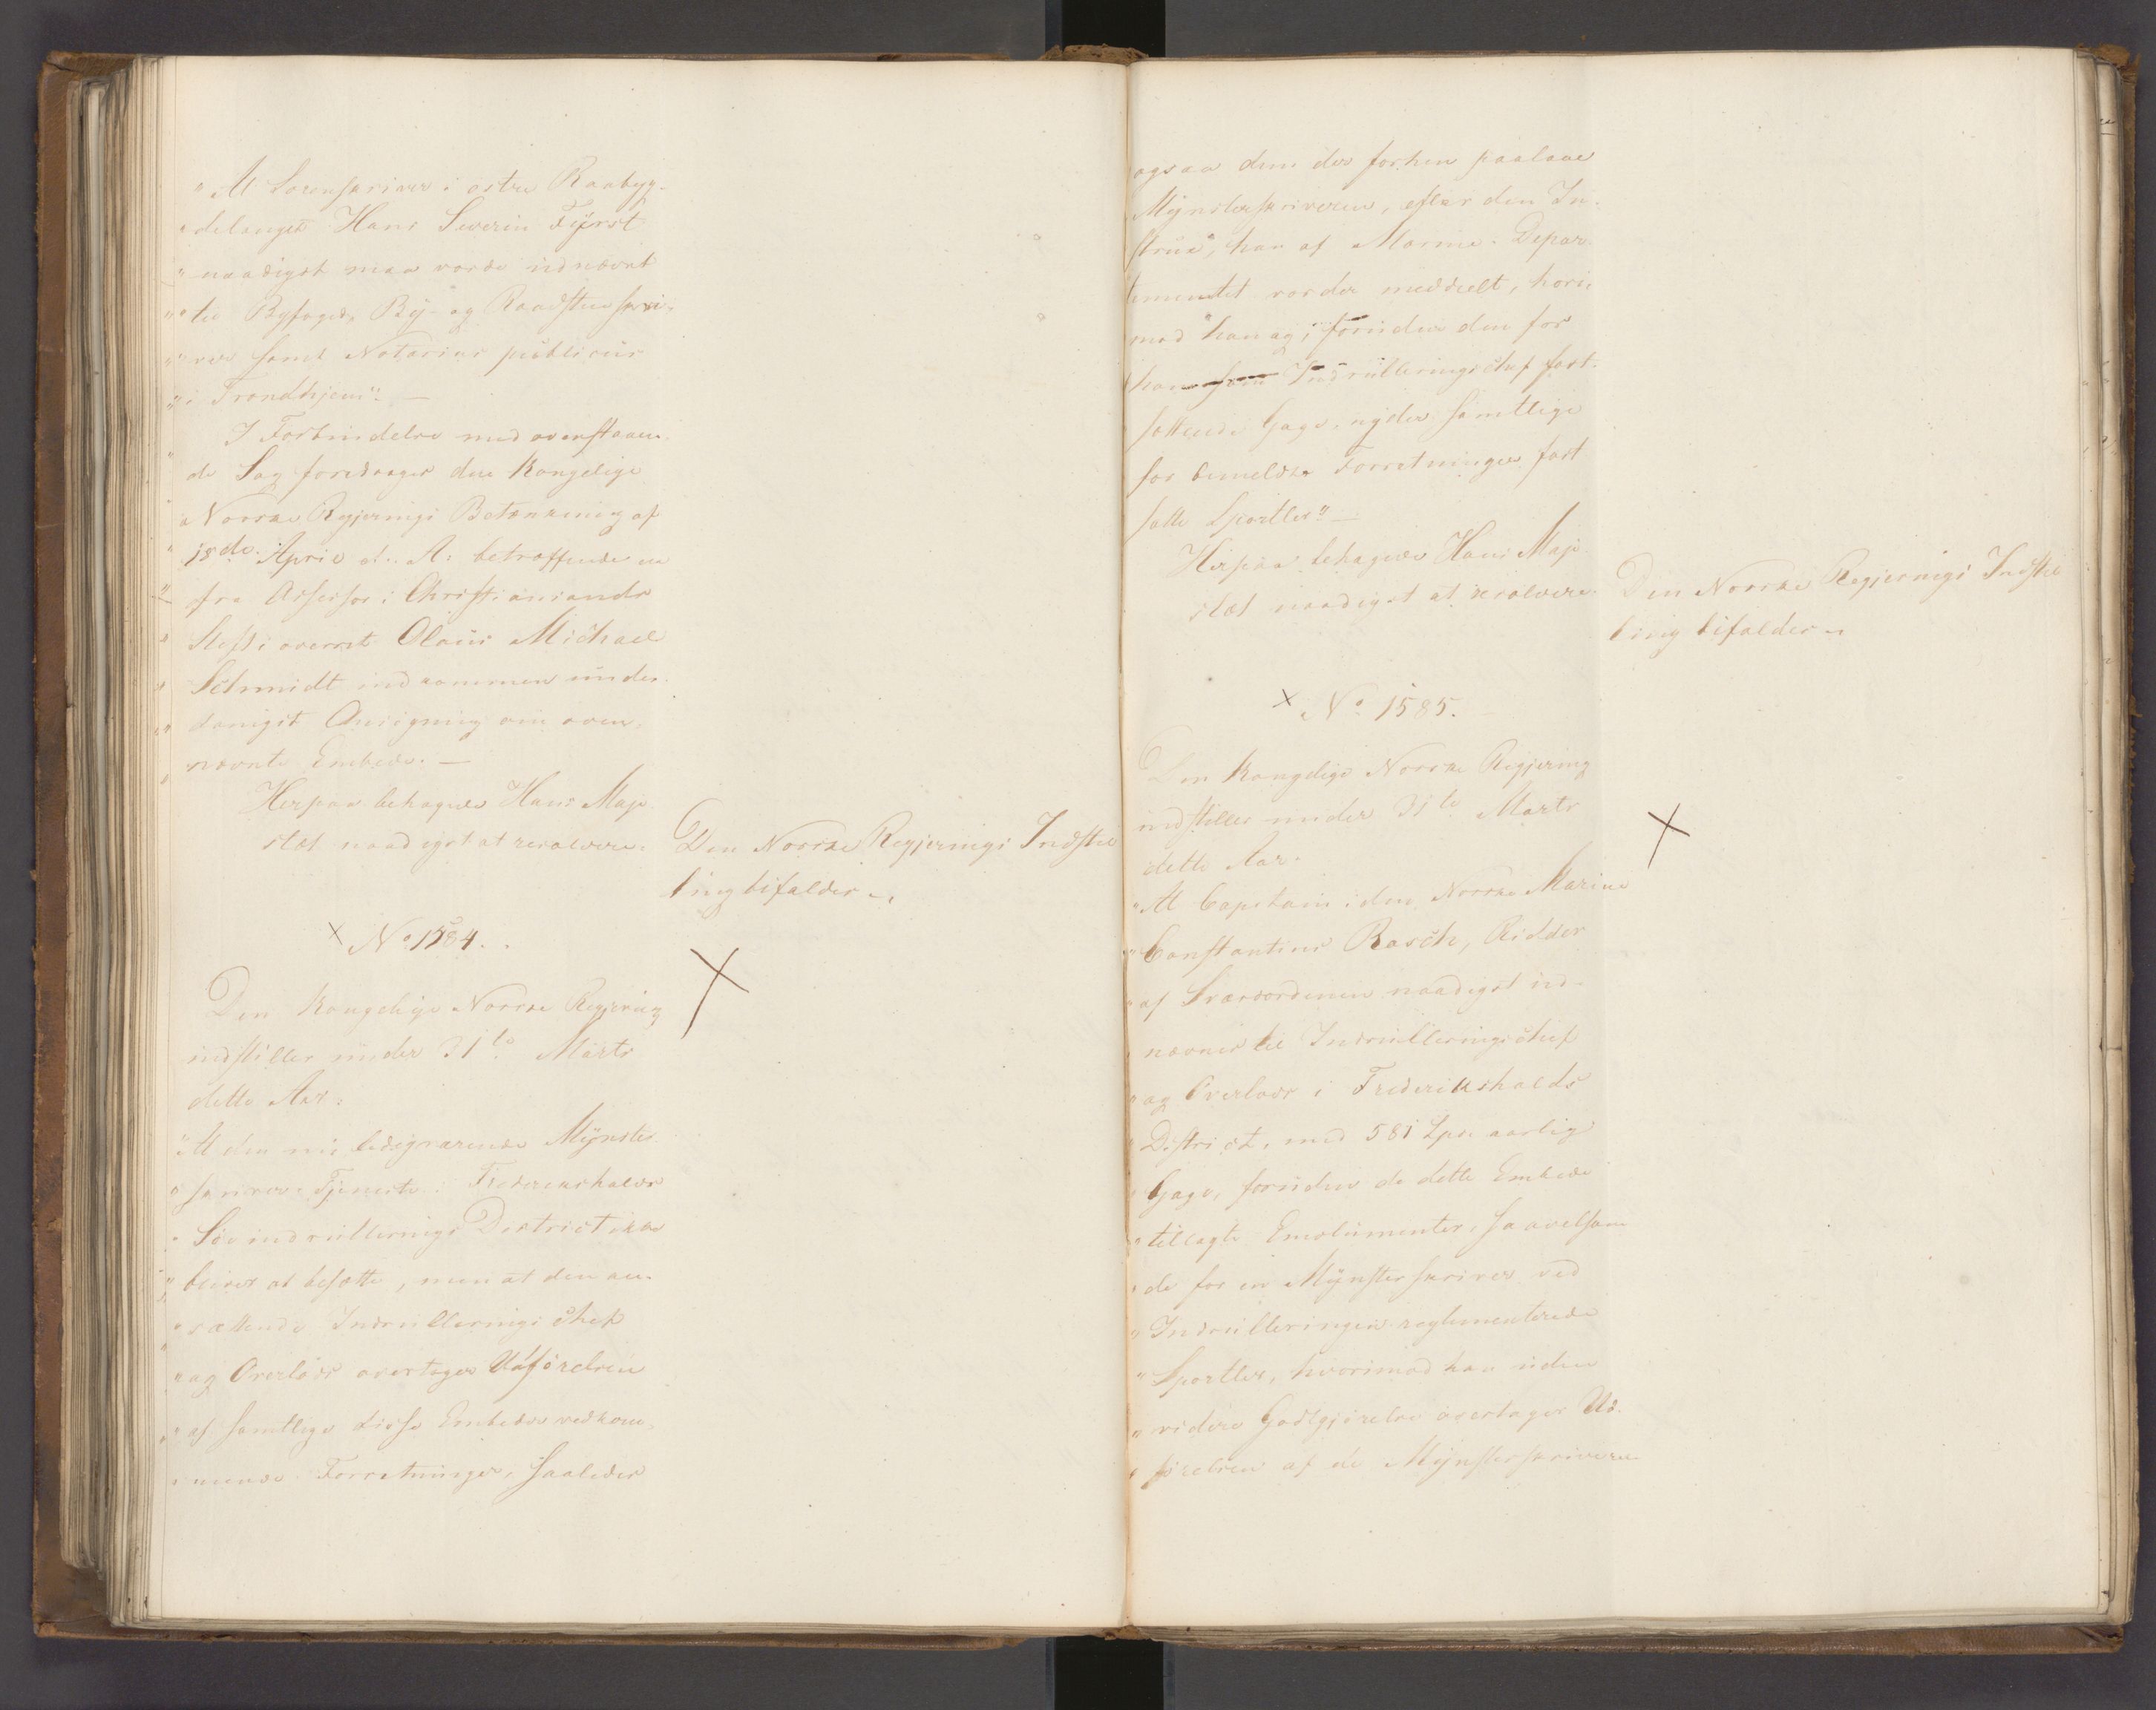 "At Sorenskriver i østre Raabyg-
"delauget Hans Severin Fÿrst
"naadigst maa vorde udnævnt
"til Byfoged, Bÿ- og Raadstueskri-
"ver samt Notarius publicus
"i Trondhjem". —
I Forbindelse med ovenstaaen-
de Sag foredrages den Kongelige
Norske Regjerings Betænkning af
18de April d. A. betræffende en
fra Assessor i Christiansands
Stiftsoverret Olaus Michael
Schmidt indkommen under-
danigst Ansøgning om oven-
nævnte Embede. —
Herpaa behagede Hans Maje-
stæt naadigst at resolvere:
Den Norske Regjerings Indstil
ling bifaldes.
× No 1584.
Den Kongelige Norske Regjering
indstiller under 31te Marts
dette Aar:
"At den nu ledigværende Mÿnster-
"skriver-Tjeneste i Frederikshalds
"Søeindrullerings District ikke
"bliver at besætte, men at den an-
"sættende Indrullerings Chef
"og Overlods overtager Udførelsen
"af samtlige disse Embeder vedkom-
"mende Forretninger, saaledes
ogsaa dem der forhen paalaae
Mÿnsterskriveren, efter den In-
strux, han af Marine-Depar-
tementet vorder meddeelt, hori-
mod han og, foruden den for
ham som Indrulleringschef fast-
sættende Gage, nyder samtlige
for bemeldte Forretninger fast
satte Sportler" —
Herpaa behagede Hans Maje-
stæt naadigst at resolvere:
Den Norske Regjerings Indstil
ling bifaldes.
× No 1585.
Den Kongelige Norske Regjering
indstiller under 31te Marts
dette Aar:
"At Capitain i den Norske Marine
"Constantius Rasch, Ridder
"af Sværdordenen naadigst ud-
"nævnes til Indrulleringschef
"og Overlods i Frederikshalds
"District, med 581 Spd aarlig
"Gage, foruden de dette Embede
"tillagte Emolumenter, saavelsom
"de for en Mÿnsterskriver ved
"Indrulleringen reglementerede
"Sportler, hvorimod han uden
"videre Godtgjørelse overtager Ud-
"førelsen af de Mÿnsterskriveren